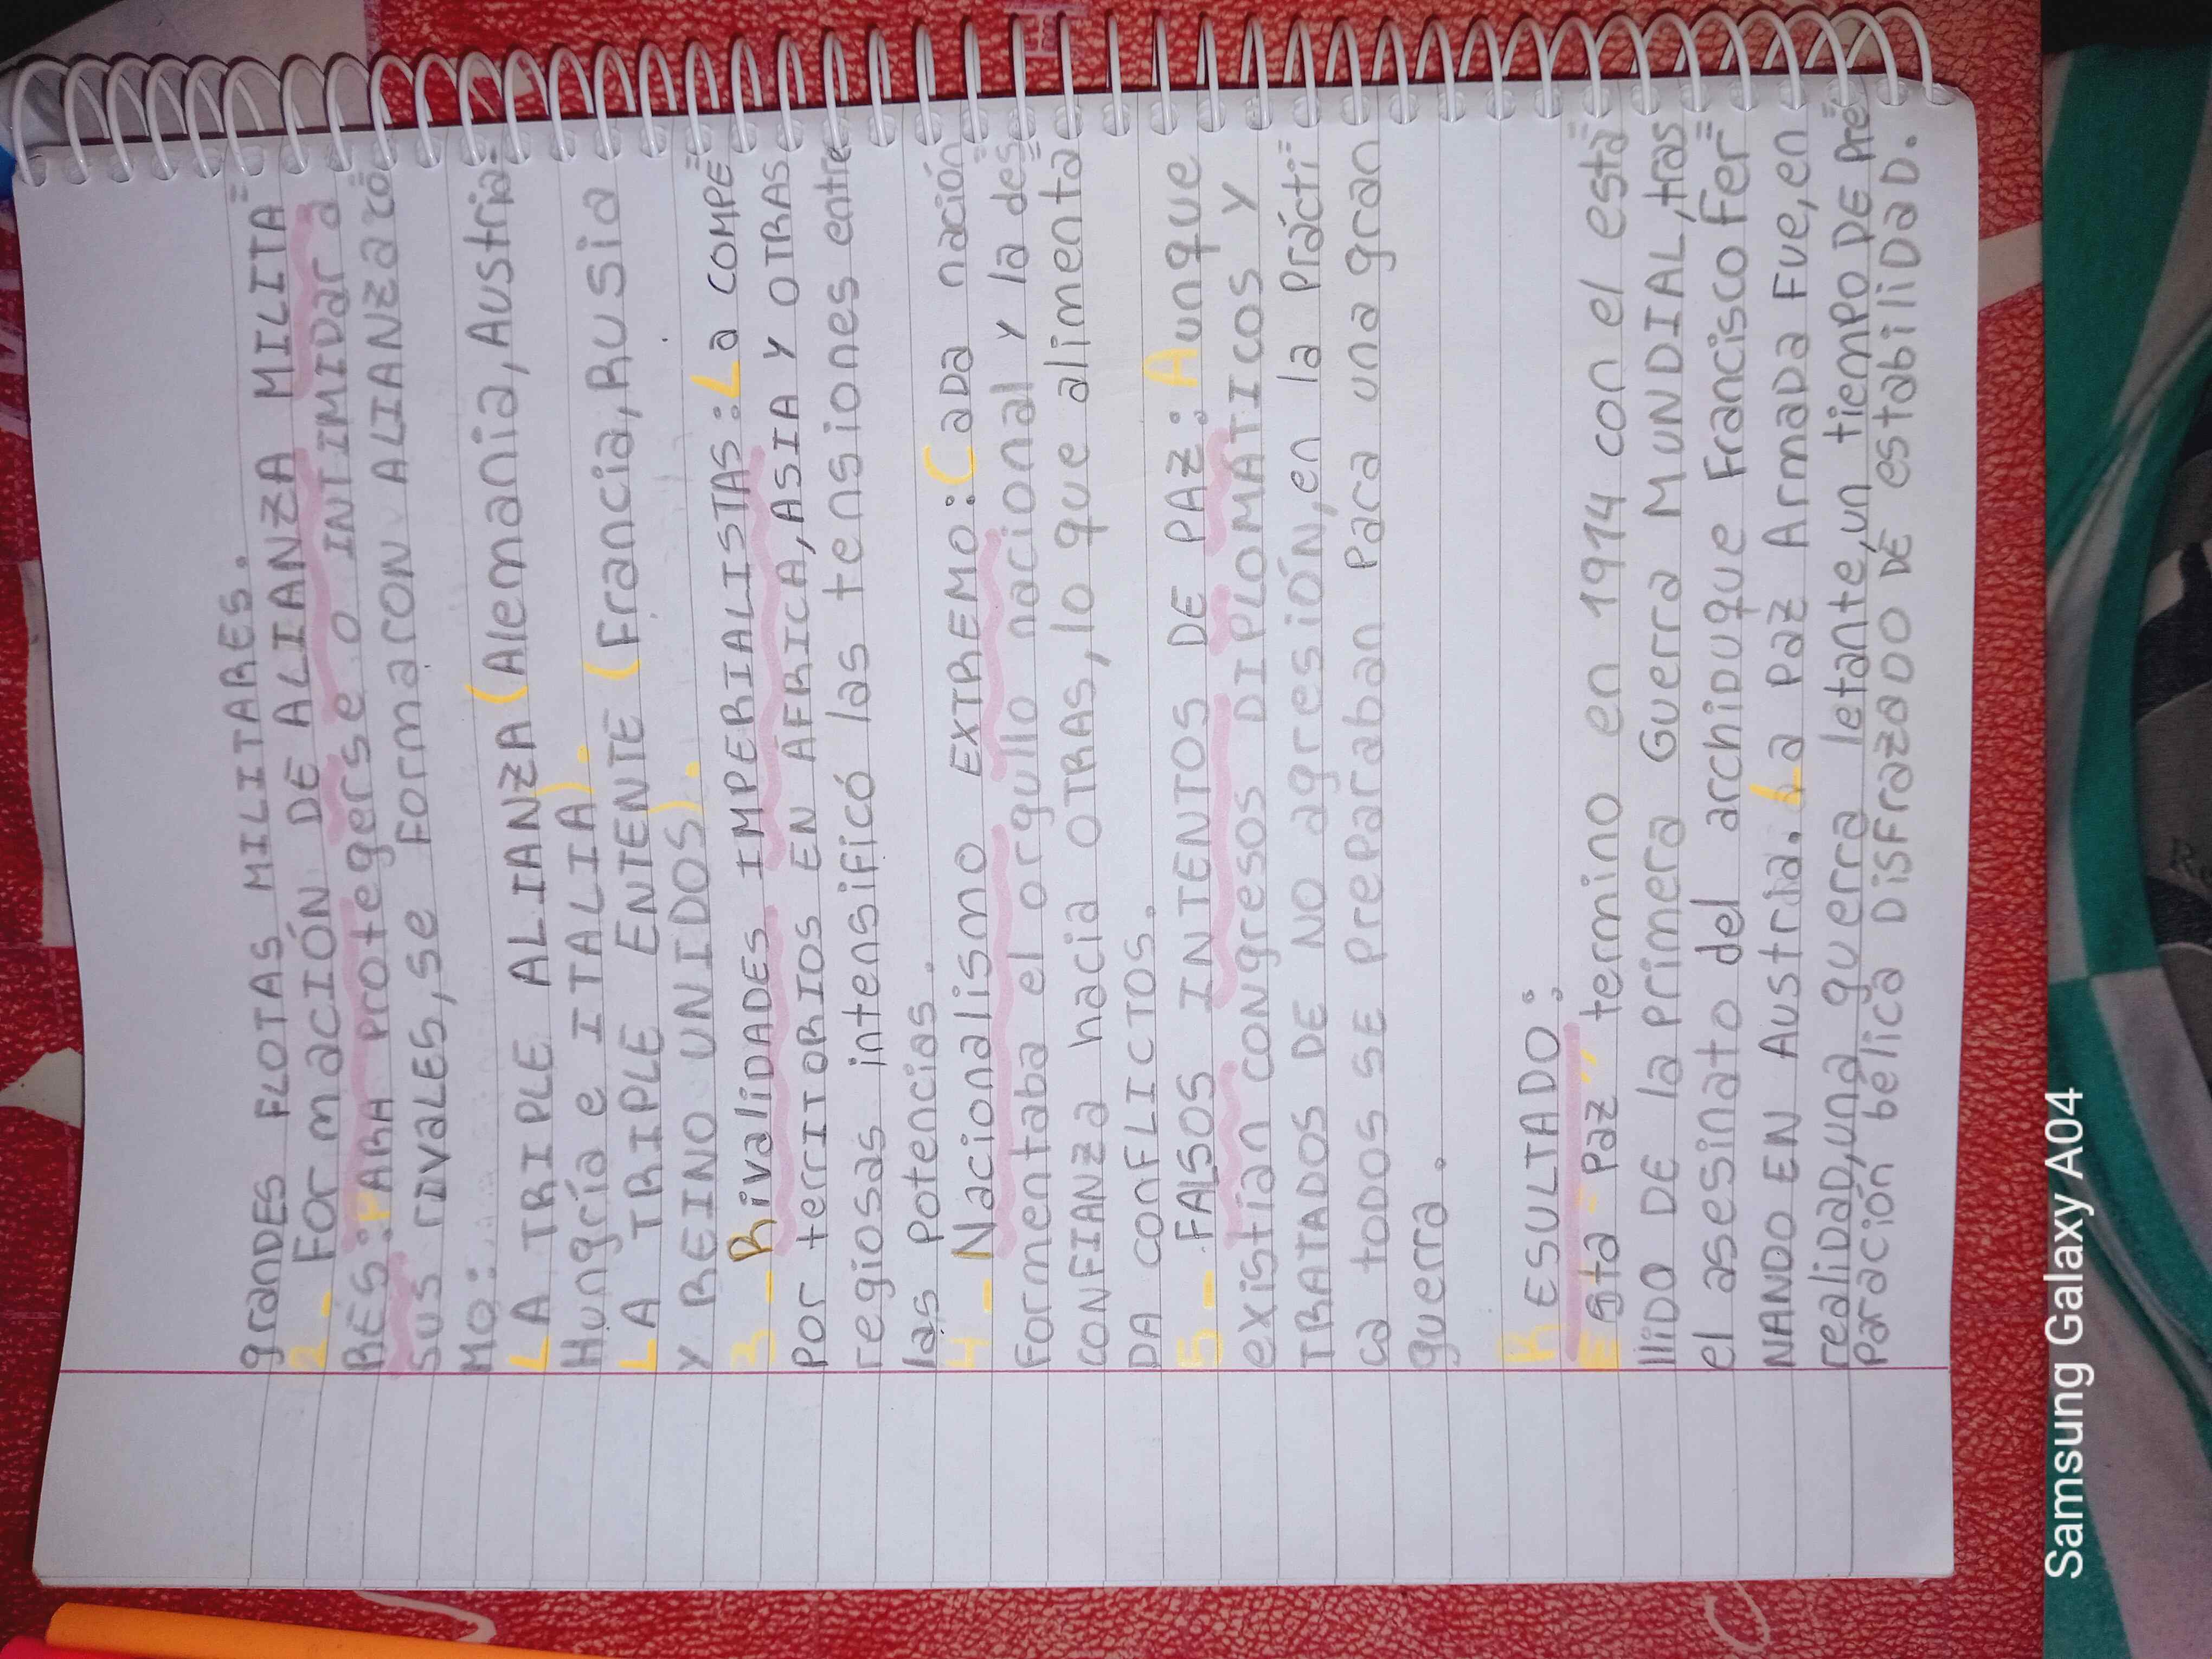 grandes FLOTAS MILITARES.
2- Formación DE ALIANZA MILITA=
RES: PARA protegerse o INTIMIDar a
sus rivaLES, se Formaron ALIANZa co=
MO:
LA TRIPLE ALIANZA (Alemania, Austria-
Hungría e ITALIA).
LA TRIPLE ENTENTE (Francia, Rusia
Y REINO UNIDOS).
3- Rivalidades IMPERIALISTAS: La COMPE=
Por territorios EN AFRICA, ASIA Y OTRAS
regiosas intensificó las tensiones entre
las potencias.
4- Nacionalismo EXTREMO: Cada nación
Formentaba el orgullo nacional y la des=
CONFIANZa hacia OTRAS, lo que alimenta
DA conFLICTOS.
5- FALSOS INTENTOS DE PAZ: Aunque
existian congresos DIPLOMATICOS Y
TRATADOS DE NO agresiÓN, en la Prácti=
ca toDOS SE PreParaban Para una gran
guerra.
RESULTADO:
Esta "Paz" termino en 1914 con el esta=
lliDO DE la Primera Guerra MUNDIAL, tras
el asesinato del archiDuque Francisco Fer=
NANDO EN Austria. La Paz ArmaDa Fue, en
realidad, una guerra letante, un tiempo DE Pre=
Paración belica DisFrazaDO DE estabiliDaD.
Samsung Galaxy A04